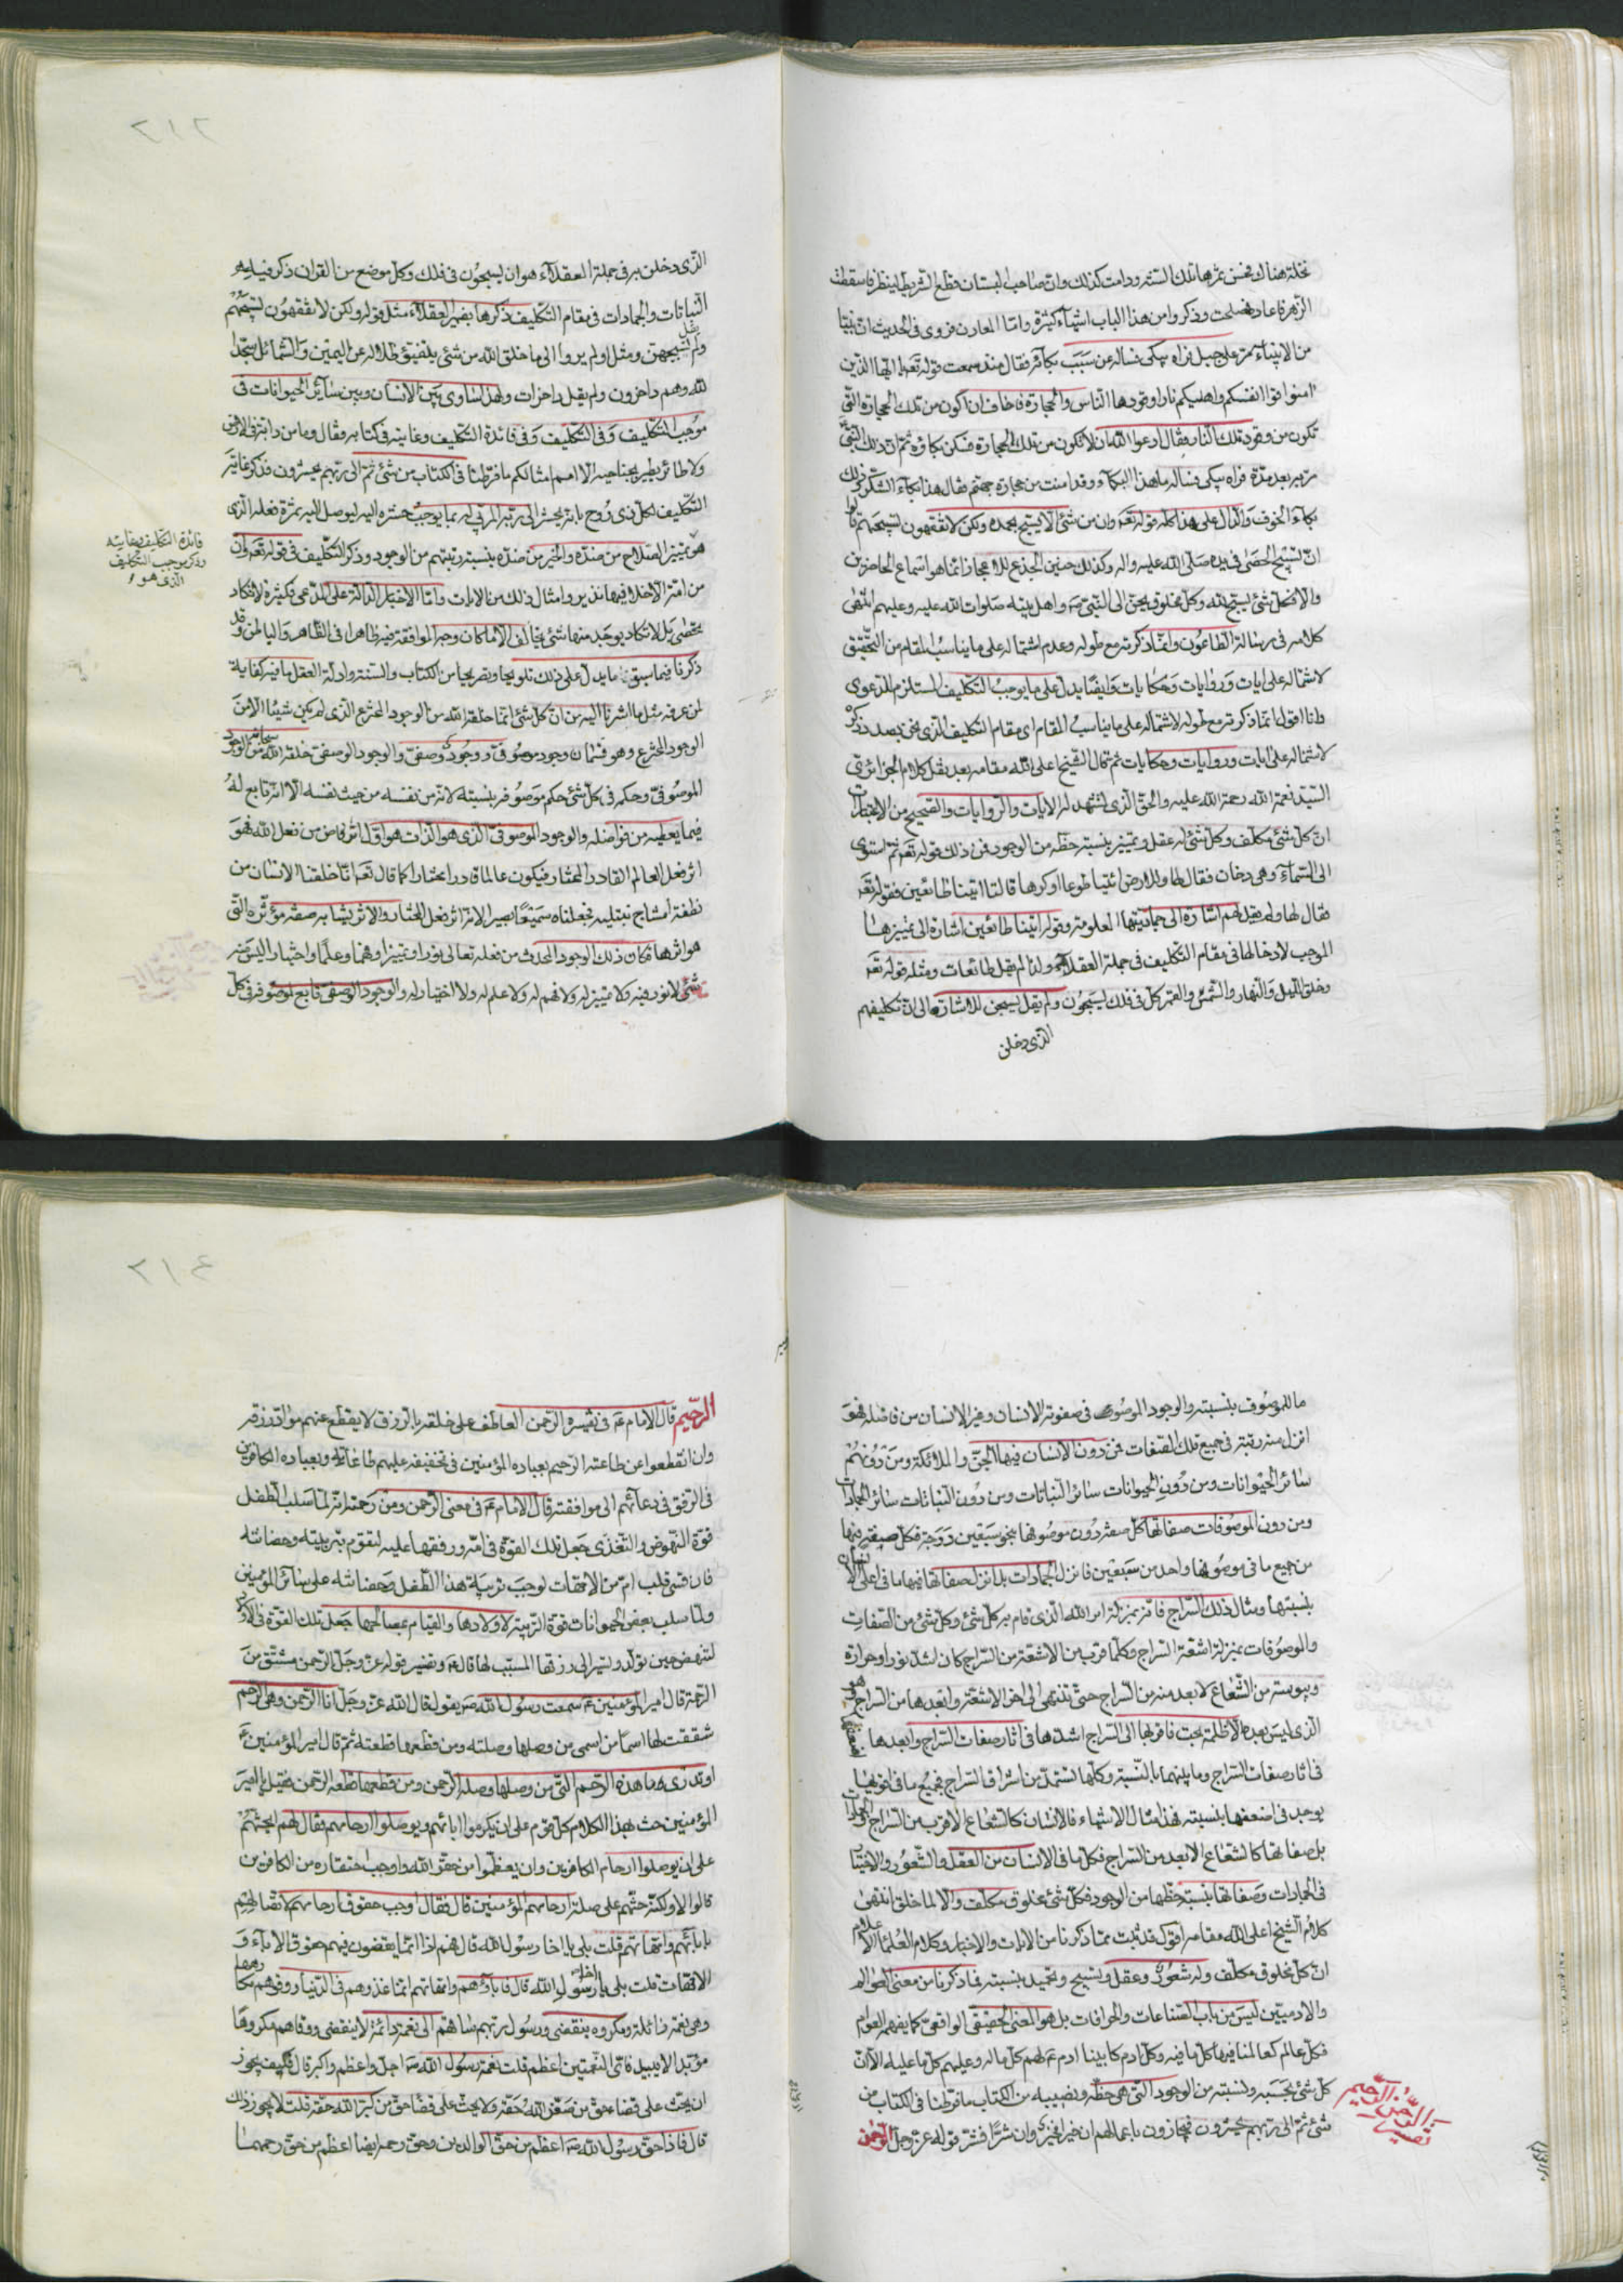 نخلة هناك فحسن ثمرها تلك السنة ودامت كذلك وان صاحب البستان قطع الشريط لينظر فاسقطت
الزهر فاعاد فصلحت وذكروا من هذا الباب اشياء كثيرة واما المعادن فروى فى الحديث ان نبيا
من الانبياء مر على جبل فراه يبكى فساله عن سبب بكائه فقال منذ سمعت قوله تعه يا ايها الذين
امنوا قوا انفسكم واهليكم نارا وقودها الناس والحجارة فاخاف ان اكون من تلك الحجارة التى
تكون من وقود تلك النار فقال ادعوا الله ان لا تكون من تلك الحجارة فسكن بكاؤه ثم ان ذلك النبى
مر به بعد مدة فراه يبكى فساله ما هذا البكاء وقد امنت من حجارة جهنم فقال هذا بكاء الشكر وذلك
بكاء الخوف والدال على هذا كله قوله تعه وان من شئ الا يسبح بحمده ولكن لا تفقهون تسبيحهم
ان تسبيح الحصى فى يده صلى الله عليه واله وكذلك حنين الجذع للاعجاز انما هو اسماع الحاضرين
والا فكل شئ يسبح لله وكل مخلوق يحن الى النبى صه واهل بيته صلوات الله عليه وعليهم انتهى
كلامه فى رسالة الطاعون وانما ذكرته مع طوله وعدم اشتماله على ما يناسب المقام من التحقيق
لاشتماله على ايات وروايات وحكايات وايضا يدل على ما يوجب التكليف المستلزم للدعوى
وانا اقول انما ذكرته مع طوله لاشتماله على ما يناسب المقام اى مقام التكليف الذى نحن بصدد ذكره
لاشتماله على ايات وروايات وحكايات ثم قال الشيخ اعلى الله مقامه بعد نقل كلام الجزائرى
السيد نعمة الله رحمة الله عليه والحق الذى تشهد له الايات والروايات والصحيح من الاعتبار
ان كل شئ مكلف وكل شئ له عقل وتمييز بنسبة حظه من الوجود فمن ذلك قوله تعه ثم استوى
الى السماء وهى دخان فقال لها وللارض ائتيا طوعا او كرها قالتا اتينا طائعين فقوله تعه
فقال لها ولم يقل لهم اشارة الى جماديتها المعلومة وقوله اتينا طائعين اشارة الى تمييزها
الموجب لادخالها فى مقام التكليف فى جملة العقلاء ولذا لم يقل طائعات ومثله قوله تعه
وخلق الليل والنهار والشمس والقمر كل فى فلك يسبحون ولم يقل يسبحن للاشارة الى ان تكليفهم
الذى دخلن
٢١٢
الذى دخلن به فى جملة العقلاء هو ان يسبحون فى فلك وكل موضع من القران ذكر فيه
النباتات والجمادات فى مقام التكليف ذكرها بضمير العقلاء مثل قوله ولكن لا تفقهون تسبيحهم
ولم يقل تسبيحهن ومثل اولم يروا الى ما خلق الله من شئ يتفيؤ ظلاله عن اليمين والشمائل سجدا
لله وهم داخرون ولم يقل داخرات ولهذا ساوى بين الانسان وبين سائر الحيوانات فى
موجب التكليف وفى التكليف وفى فائدة التكليف وغايته فى كتابه وقال وما من دابة فى الارض
ولا طائر يطير بجناحيه الا امم امثالكم ما فرطنا فى الكتاب من شئ ثم الى ربهم يحشرون فذكر غاية
التكليف لكل ذى روح بانه يحشر الى ربه المربى له بما يوجب حشره اليه ليوصل اليه ثمرة فعله الذى
هو تمييز الصلاح من ضده والخير من ضده بنسبة رتبتهم من الوجود وذكر التكليف فى قوله تعه وان
من امة الا خلا فيها نذير وامثال ذلك من الايات واما الاخبار الدالة على المدعى فكثيرة لا تكاد
تحصى بل لا تكاد يوجد منها شئ يخالف الا ما كان وجه الموافقة فيه ظاهرا فى الظاهر والباطن وقد
ذكرنا فيما سبق ما يدل على ذلك تلويحا وتصريحا من الكتاب والسنة وادلة العقل ما فيه كفاية
لمن عرفه مثل ما اشرنا اليه من ان كل شئ انما خلقه الله من الوجود المخترع الذى لم يكن شيئا الا من
الوجود المخترع وهو قسمان وجود موصوفى ووجود وصفى والوجود الوصفى خلقه الله سبحانه من الوجود
الموصوفى وحكمه فى كل شئ حكم موصوفه بنسبته لانه من نفسه من حيث نفسه الا انه تابع له
فيما يعطيه من فواضله والوجود الموصوفى الذى هو الذات هو اول اثر فاض من فعل الله فهو
اثر فعل العالم القادر المختار فيكون عالما قادرا مختارا كما قال تعه انا خلقنا الانسان من
نطفة امشاج نبتليه فجعلناه سميعا بصيرا لانه اثر فعل المختار والاثر يشابه صفة مؤثره التى
هو اثرها فكان ذلك الوجود المحدث من فعله تعالى نورا وتمييزا وفهما وعلما واختيارا ليس فيه
شئ لا نور فيه ولا تمييز له ولا فهم له ولا علم له ولا اختيار له والوجود الوصفى تابع لموصوفه فى كل
فائدة التكليف وغايته
وذكر موجب التكليف
الذى هو
ما للموصوف بنسبته والوجود الموصوفى صفوته الانسان وغير الانسان من فاضله فهو
انزل منه رتبة فى جميع تلك الصفات فمن دون الانسان فيها الجن والملائكة ومن دونهم
سائر الحيوانات ومن دون الحيوانات سائر النباتات ومن دون النباتات سائر الجمادات
ومن دون الموصوفات صفاتها كل صفة دون موصوفها بنحو سبعين درجة فكل صفة فيها
من جميع ما فى موصوفها واحد من سبعين فانزل الجمادات بل انزل صفاتها فيها ما فى اعلى الانسان
بنسبتها ومثال ذلك السراج فانه بمنزلة امر الله الذى قام به كل شئ وكل شئ من الصفات
والموصوفات بمنزلة اشعة السراج وكلما قرب من الاشعة من السراج كان اشد نورا وحرارة
ويبوسة من الشعاع الابعد منه من السراج حتى تنتهى الى اخر الاشعة وابعدها من السراج وهو
الذى ليس بعده الا ظلمة بحت فاقربها الى السراج اشدها فى اثار صفات السراج وابعدها اضعفها
فى اثار صفات السراج وما بينهما بالنسبة وكلها تستمد من اشراق السراج فجميع ما فى اقواها
يوجد فى اضعفها بنسبته فهذا مثال الاشياء فالانسان كالشعاع الاقرب من السراج والجمادات
بل صفاتها كالشعاع الابعد من السراج فكل ما فى الانسان من العقل والشعور والاختيار
فى الجمادات وصفاتها بنسبة حظها من الوجود فكل شئ مخلوق مكلف والا لما خلق انتهى
كلام الشيخ اعلى الله مقامه اقول قد ثبت مما ذكرنا من الايات والاخبار وكلام العلماء الاعلام
ان كل مخلوق مكلف وله شعور وعقل وتسبيح وتحميد بنسبته فما ذكرنا من معنى العوالم
والادميين ليس من باب الصناعات والخرافات بل هو المعنى الحقيقى الواقعى كما يفهمه العوام
فكل عالم كعالمنا فيها كل ما فيه وكل ادم كابينا ادم عم لهم كل ما له وعليهم كل ما عليه الا ان
كل شئ بحسبه ونسبته من الوجود التى هى حظه ونصيبه من الكتاب ما فرطنا فى الكتاب من
شئ ثم الى ربهم يحشرون فيجازون باعمالهم ان خيرا فخير وان شرا فشر قوله عز وجل الرحمن
تفسير الرحمن الرحيم
٢١٤
الرحيم قال الامام عم فى تفسيره الرحمن العاطف على خلقه بالرزق لا يقطع عنهم مواد رزقه
وان انقطعوا عن طاعته الرحيم بعباده المؤمنين فى تخفيفه عليهم طاعاته وبعباده الكافرين
فى الرفق فى دعائهم الى موافقته قال الامام عم فى معنى الرحمن ومن رحمته انه لما سلب الطفل
قوة النهوض والتغذى جعل تلك القوة فى امه ورققها عليه لتقوم بتربيته وحضانته
فان قسى قلب ام من الامهات لوجب تربية هذا الطفل وحضانته على سائر المؤمنين
ولما سلب بعض الحيوانات قوة التربية لاولادها والقيام بمصالحها جعل تلك القوة فى الاولاد
لتنهض حين تولد وتسير الى رزقها المسبب لها قال عم وتفسير قوله عز وجل الرحمن مشتق من
الرحمة قال امير المؤمنين عم سمعت رسول الله صه يقول قال الله عز وجل انا الرحمن وهى الرحم
شققت لها اسما من اسمى من وصلها وصلته ومن قطعها قطعته ثم قال امير المؤمنين عم
او تدرى ما هذه الرحم التى من وصلها وصله الرحمن ومن قطعها قطعه الرحمن فقيل يا امير
المؤمنين حث بهذا الكلام كل قوم على ان يكرموا اباءهم ويوصلوا ارحامهم فقال لهم ايحثهم
على ان يوصلوا ارحام الكافرين وان يعظموا من حقره الله واوجب احتقاره من الكافرين
قالوا لا ولكنه حثهم على صلة ارحامهم المؤمنين قال فقال اوجب حقوق ارحامهم لاتصالهم
بابائهم وامهاتهم قلت بلى يا اخا رسول الله قال فهم اذا انما يقضون فيهم حقوق الاباء و
الامهات قلت بلى يا اخا رسول الله قال فاباؤهم وامهاتهم انما غذوهم فى الدنيا ووقوهم مكارهها
وهى نعمة زائلة ومكروه ينقضى ورسول ربهم ساقهم الى نعمة دائمة لا ينقضى ووقاهم مكروها
مؤبدا لا يبيد فاى النعمتين اعظم قلت نعمة رسول الله صه اجل واعظم واكبر قال فكيف يجوز
ان يحث على قضاء حق من صغر الله حقه ولا يحث على قضاء حق من كبر الله حقه قلت لا يجوز ذلك
قال فاذا حق رسول الله صه اعظم من حق الوالدين وحق رحمه ايضا اعظم من حق رحمهما